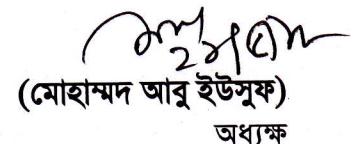 (মোহাম্মদ আবু ইউসুফ)
অধ্যক্ষ